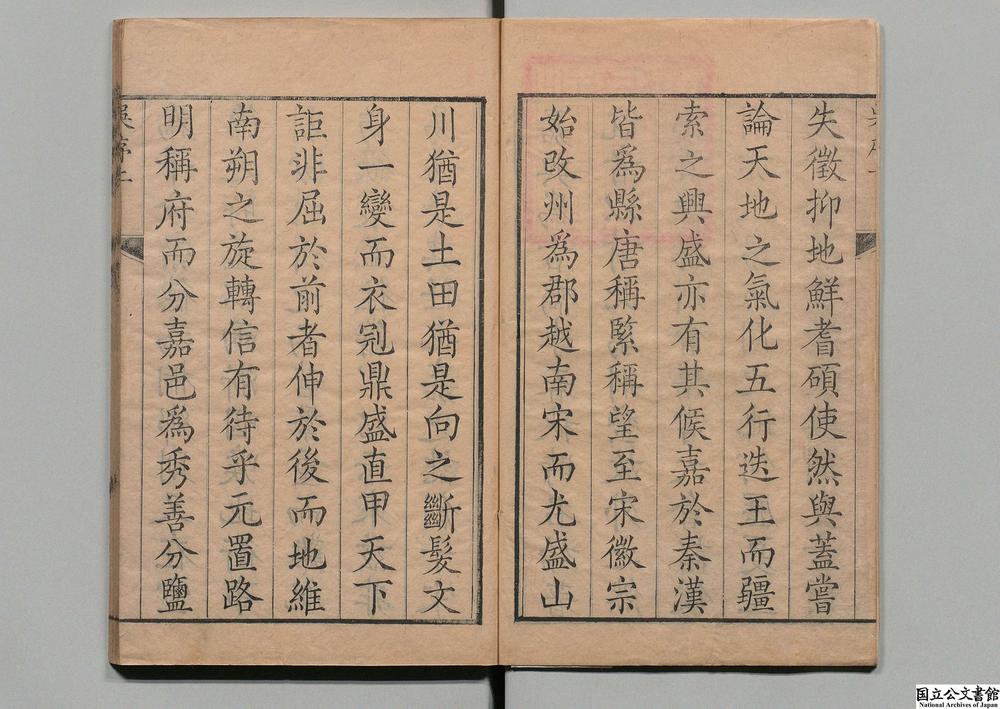 失徵抑地鮮耆碩使然與蓋嘗
論天地之氣化五行迭王而疆
索之興盛亦有其候嘉於秦漢
皆爲縣唐稱緊稱望至宋徽宗
始改州爲郡越南宋而尤盛山
川猶是土田猶是向之斷髮文
身一變而衣冠鼎盛直甲天下
詎非屈於前者伸於後而地維
南朔之旋轉信有待乎元置路
明稱府而分嘉邑爲秀善分鹽
吳序二
国立公文書館
National Archives of Japan